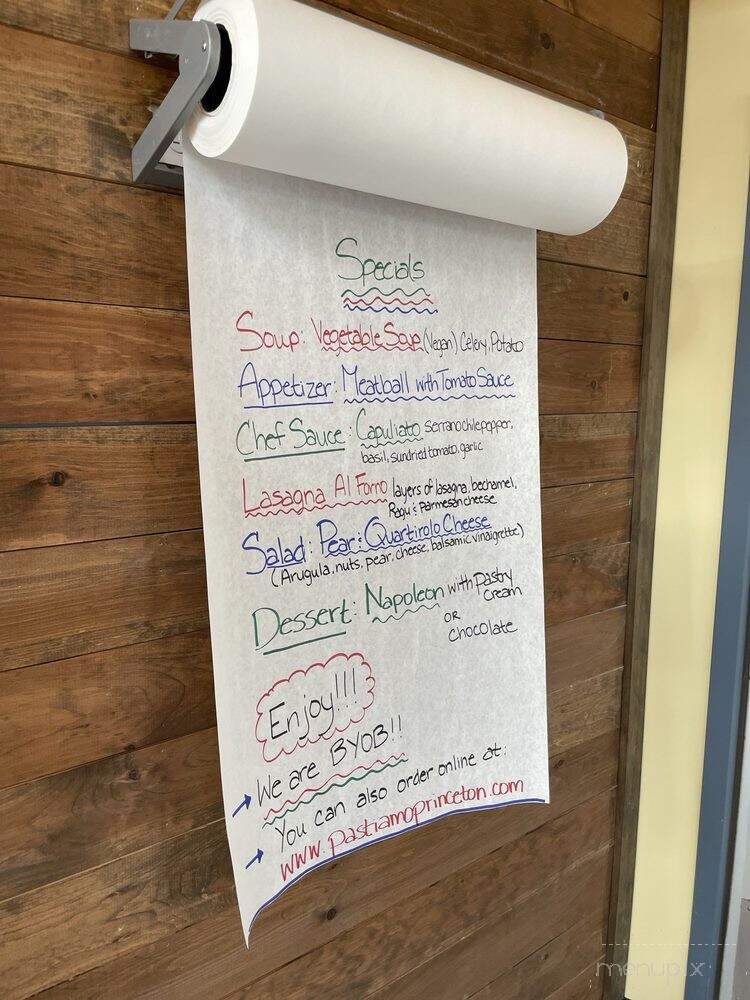 Specials
Soup: Vegetable Soup (Vegan) Celery, Potato
Appetizer: Meatball with Tomato Sauce
Chef Sauce: Capuliato serrano chile pepper,
basil, sundried tomato, garlic
Lasagna Al Forno layers of lasagna, bechamel,
Ragu & Parmesan cheese
Salad: Pear & Quartirolo Cheese
(Arugula, nuts, pear, cheese, balsamic vinaigrette)
Dessert: Napoleon with Pastry
Cream
OR
Chocolate
Enjoy!!!
We are BYOB!!
You can also order online at:
www.pastiamoprinceton.com
menupix